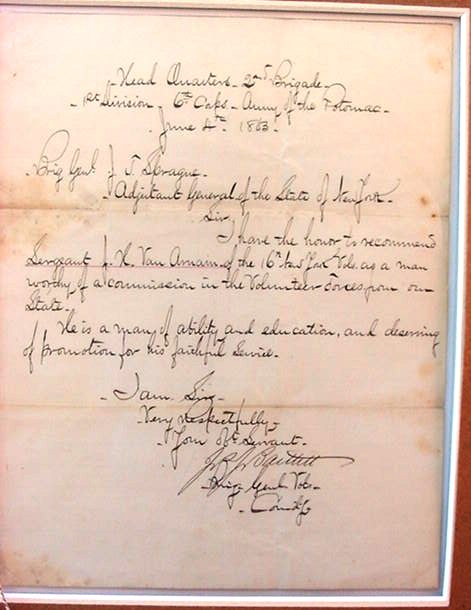 Head Quarters 2nd Brigade
1st Division 6th Corps Army of the Potomac
June 4th 1863
Brig Genl. J. T. Sprague
Adjutant General of the State of New York
Sir
I have the honor to recommend
Sergeant J. H. Van Arnam of the 16th New York Vols. as a man
worthy of a commission in the Volunteer forces from our
State.
He is a man of ability and education, and deserving
of promotion for his faithful service.
I am Sir
Very respectfully
Your Obt. Servant
Bartlett
Brig Genl Vols
Comdg